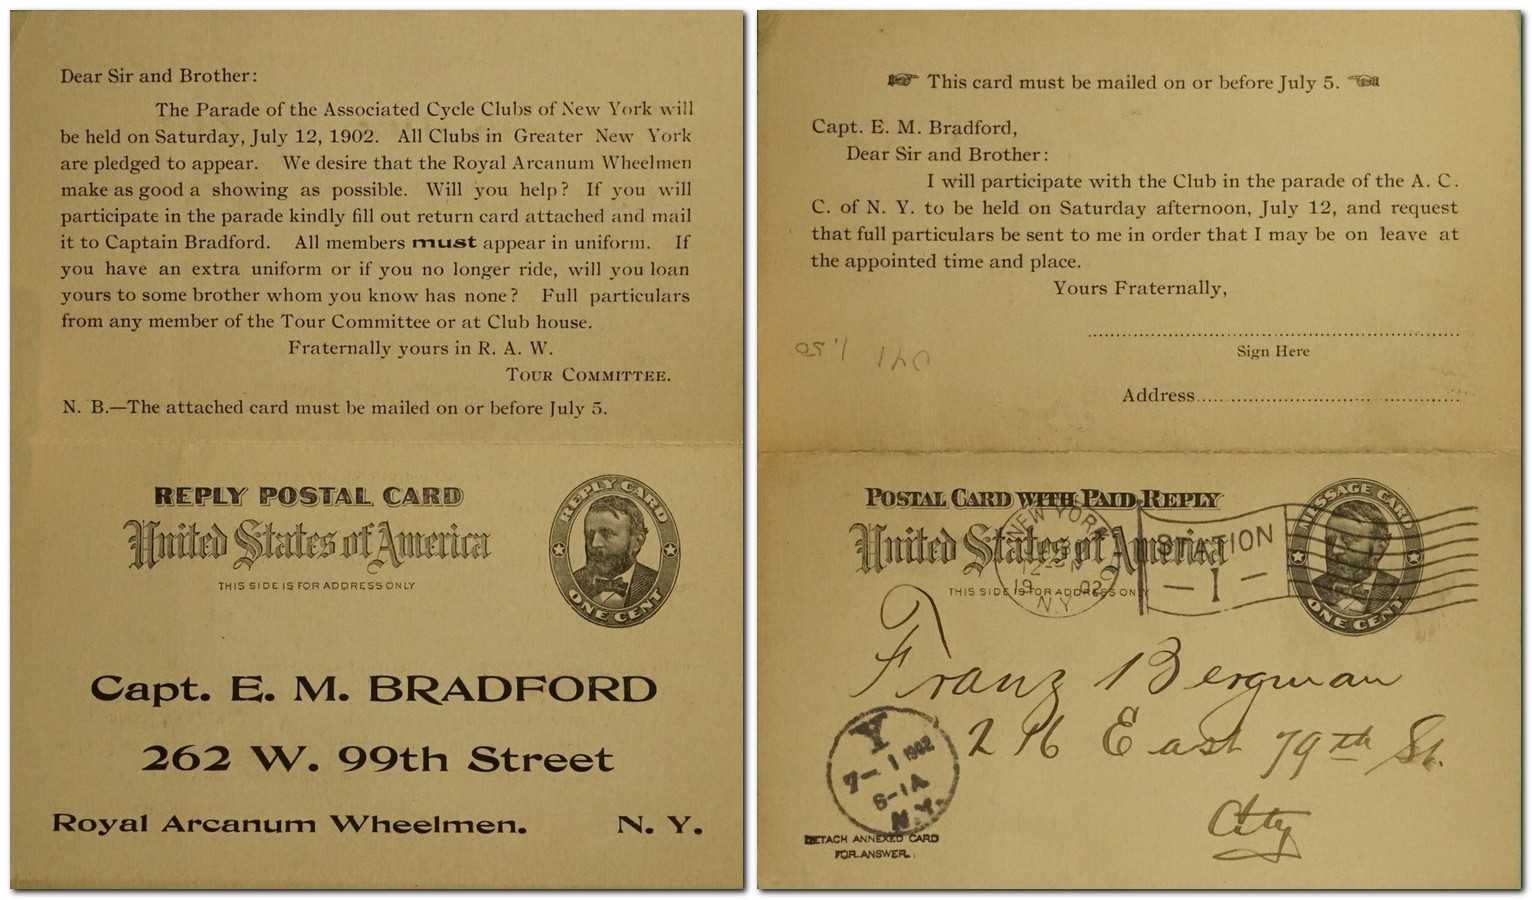 Dear Sir and Brother:
The Parade of the Associated Cycle Clubs of New York will
be held on Saturday, July 12, 1902. All Clubs in Greater New York
are pledged to appear. We desire that the Royal Arcanum Wheelmen
make as good a showing as possible. Will you help? If you will
participate in the parade kindly fill out return card attached and mail
it to Captain Bradford. All members must appear in uniform. If
you have an extra uniform or if you no longer ride, will you loan
yours to some brother whom you know has none? Full particulars
from any member of the Tour Committee or at Club house.
Fraternally yours in R. A. W.
TOUR COMMITTEE.
N. B.—The attached card must be mailed on or before July 5.
REPLY POSTAL CARD
United States of America
THIS SIDE IS FOR ADDRESS ONLY
REPLY CARD
ONE CENT
Capt. E. M. BRADFORD
262 W. 99th Street
Royal Arcanum Wheelmen. N. Y.
☞ This card must be mailed on or before July 5. ☜
Capt. E. M. Bradford,
Dear Sir and Brother:
I will participate with the Club in the parade of the A. C.
C. of N. Y. to be held on Saturday afternoon, July 12, and request
that full particulars be sent to me in order that I may be on leave at
the appointed time and place.
Yours Fraternally,
Sign Here
Address
1.50
POSTAL CARD WITH PAID REPLY
United States of America
THIS SIDE IS FOR ADDRESS ONLY
MESSAGE CARD
ONE CENT
NEW YORK
N.Y.
STATION
— I —
Franz Bergman
216 East 79th St.
City
Y
7-1 1902
6-1A
N.Y.
DETACH ANNEXED CARD
FOR ANSWER.